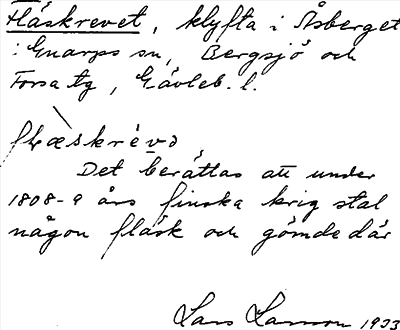 Fläskrevet, klyfta i Åsberget
i Gnarps sn, Bergsjö och
Forsa tg, Gävleb. l.
flæskrèvə
Det berättas att under
1808-9 års finska krig stal
någon fläsk och gömde där
Lars Larsson 1933